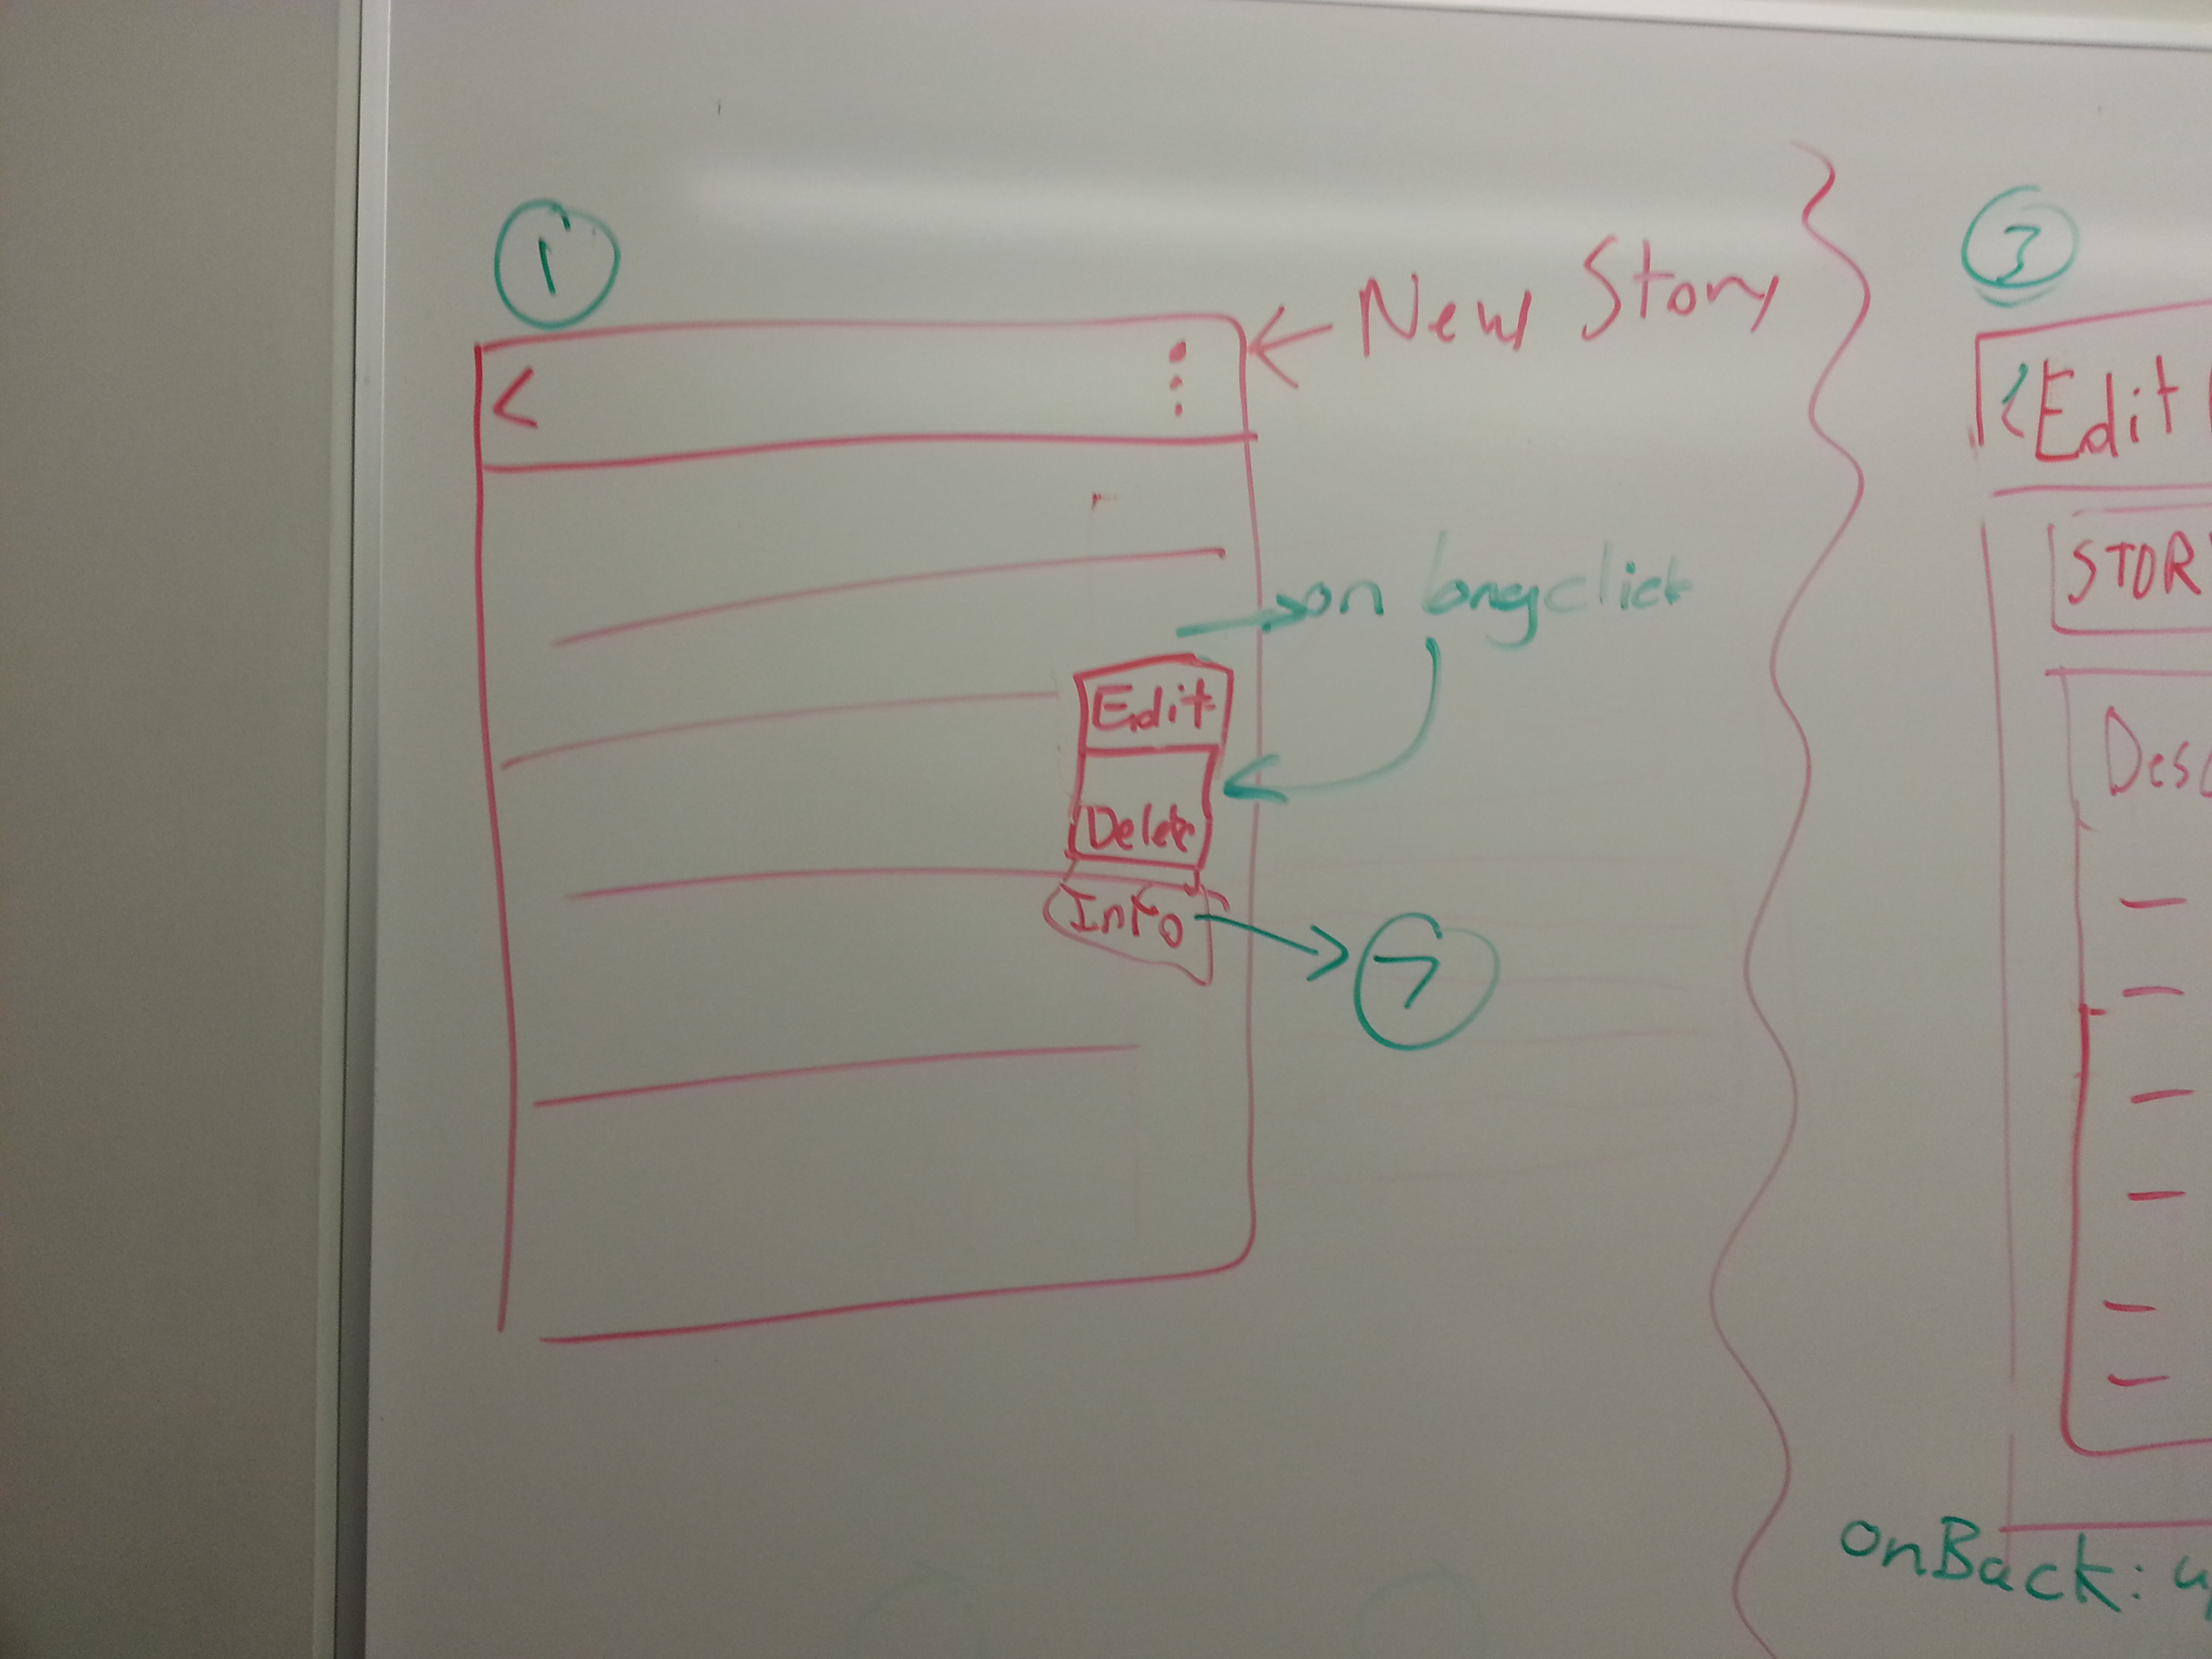 1
< ⋮
← New Story
→ on longclick
Edit
Delete
Info → 7
3
< Edit
STOR
Desc
onBack: up